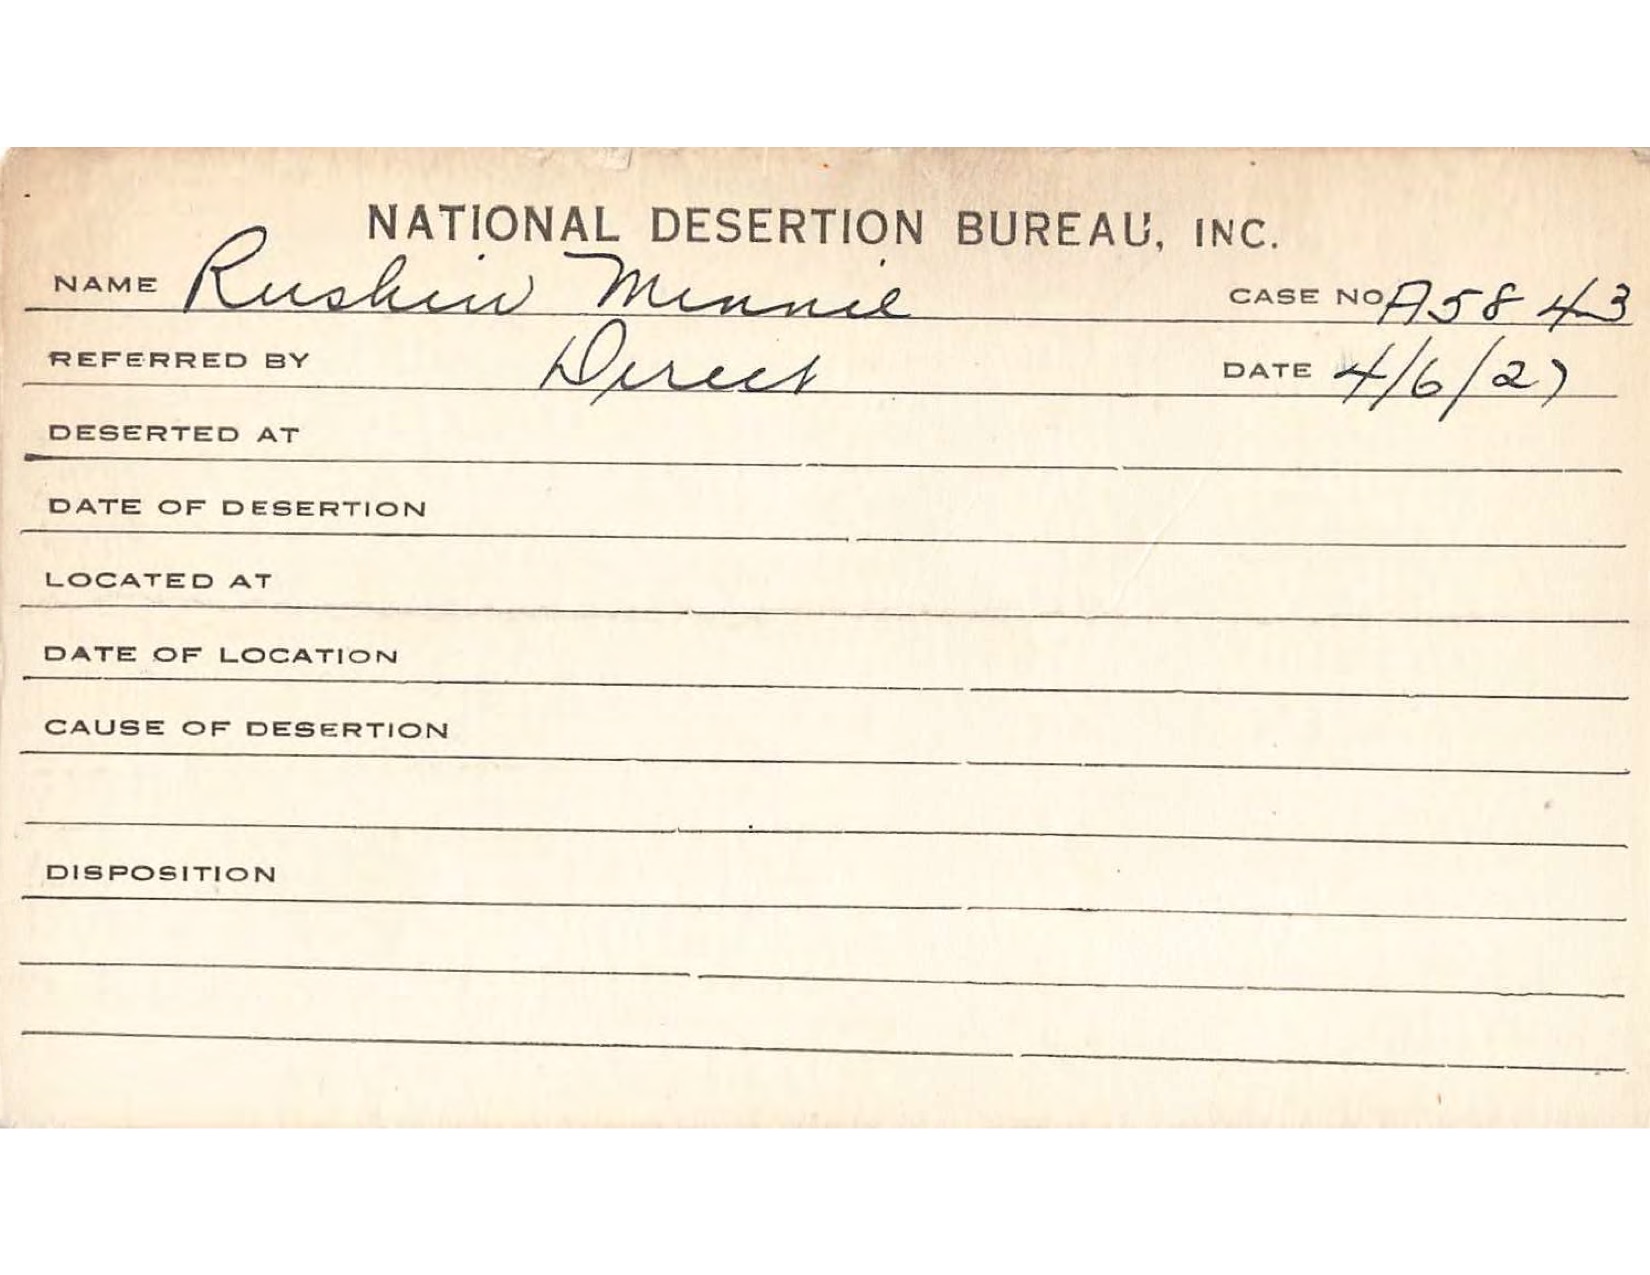 NATIONAL DESERTION BUREAU, INC.
NAME Ruskin Minnie CASE NO. A5843
REFERRED BY Direct DATE 4/6/27
DESERTED AT
DATE OF DESERTION
LOCATED AT
DATE OF LOCATION
CAUSE OF DESERTION
DISPOSITION